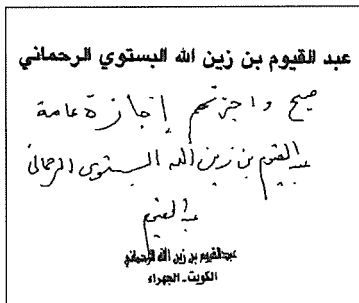 عبد القيوم بن زين الله البستوي الرحماني
صحيح وأجزتهم إجازة عامة
عبد القيوم بن زين الله البستوي الرحماني
عبد القيوم
عبدالقيوم بن زين الله الرحماني
الكويت - الجهراء